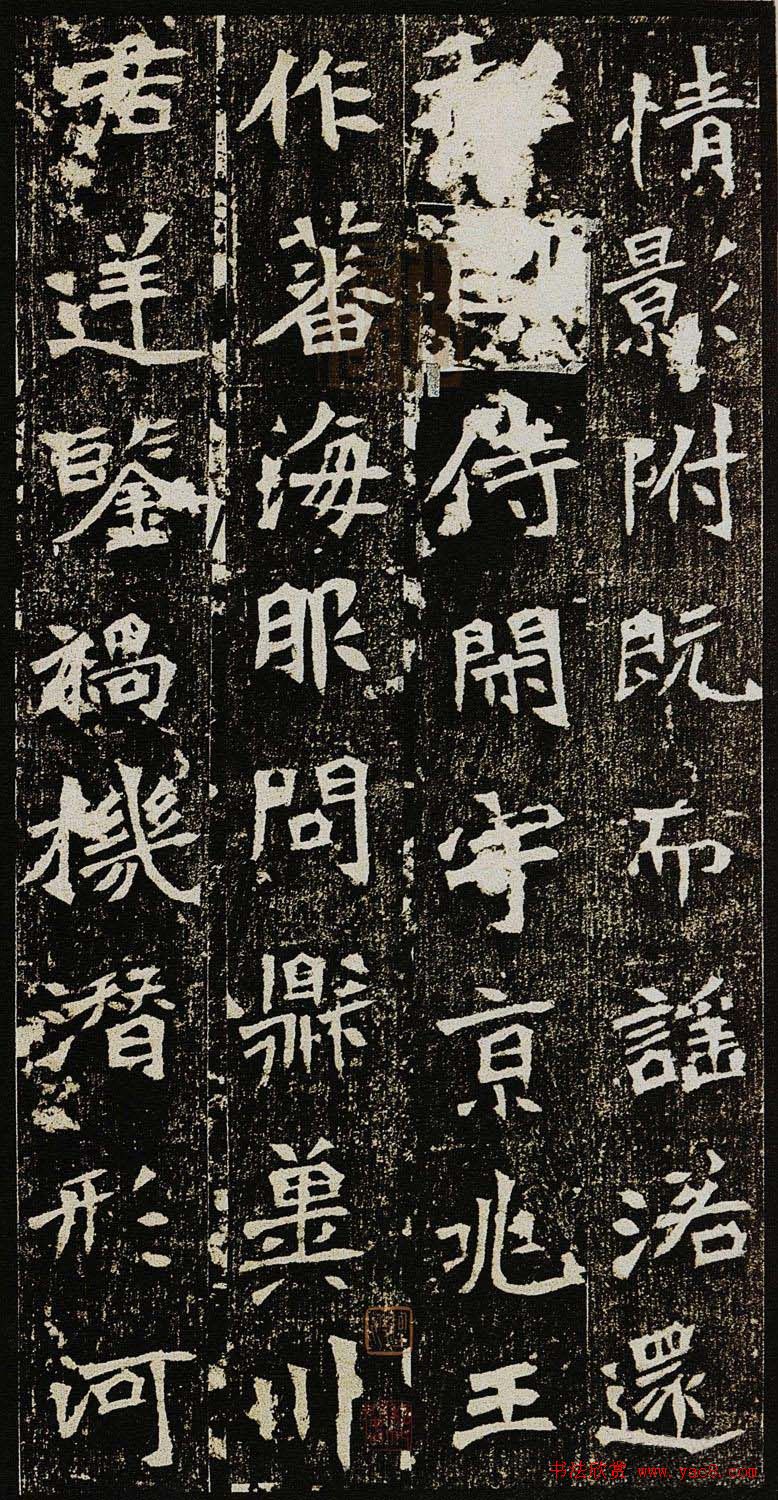 情影附既而謠落還
侍閑守京兆王
作蕃海服問鼎冀川
君逆鑒禍機潛形河
书法欣赏 www.yac8.com